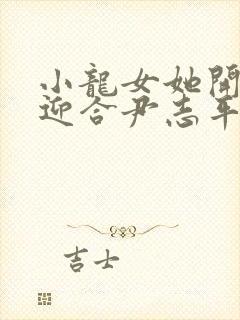 小龍女她開
迎合尹志平
吉士